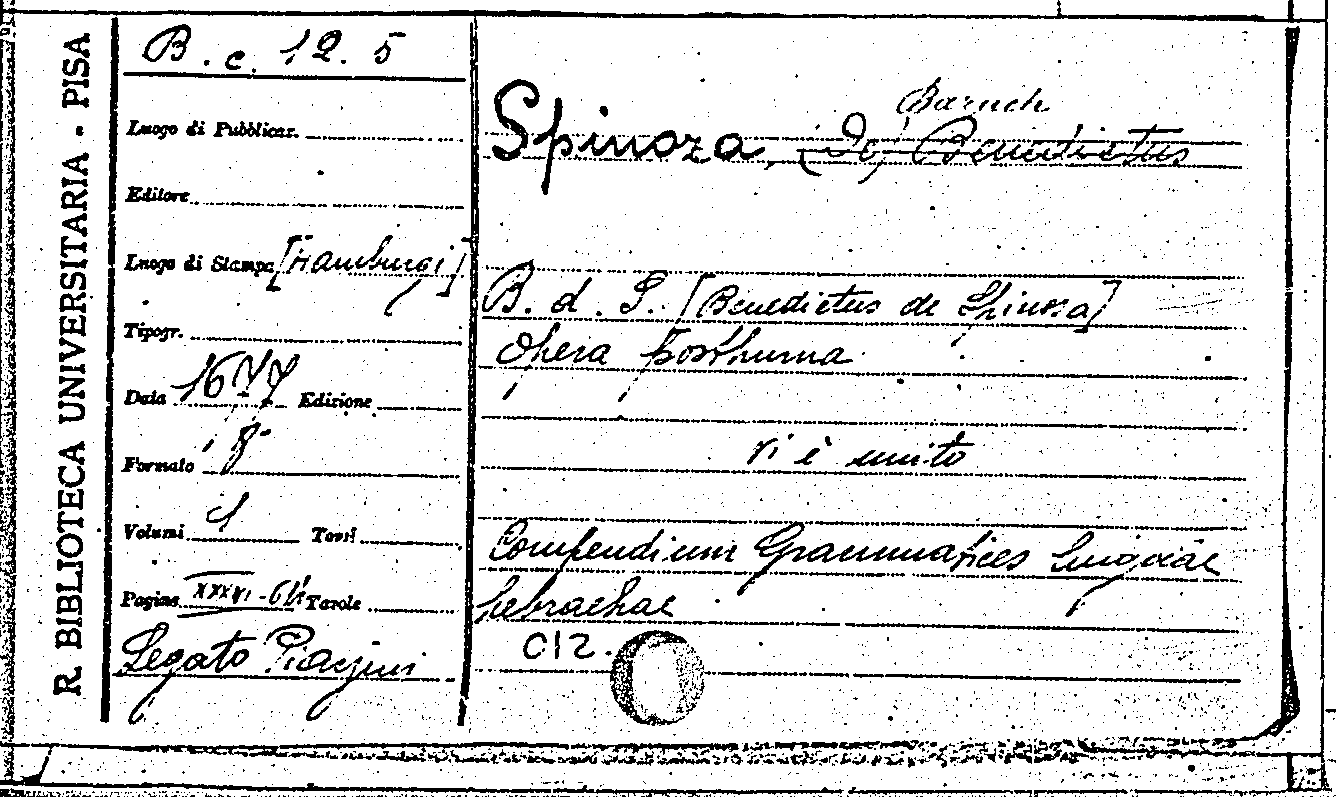 R. BIBLIOTECA UNIVERSITARIA - PISA
B. c. 12. 5
Luogo di Pubblicaz.
Editore
Luogo di Stampa [Hamburgi]
Tipogr.
Data 1677 Edizione
Formato 8°
Volumi 1 Tomi
Pagine XXXVI-614 Tavole
Legato Piazzini
Baruch
Spinoza, (De) Benedictus
B. d. S. [Benedictus de Spinosa]
Opera posthuma
vi è unito
Compendium Grammatices Linguae
hebraehae
C12.